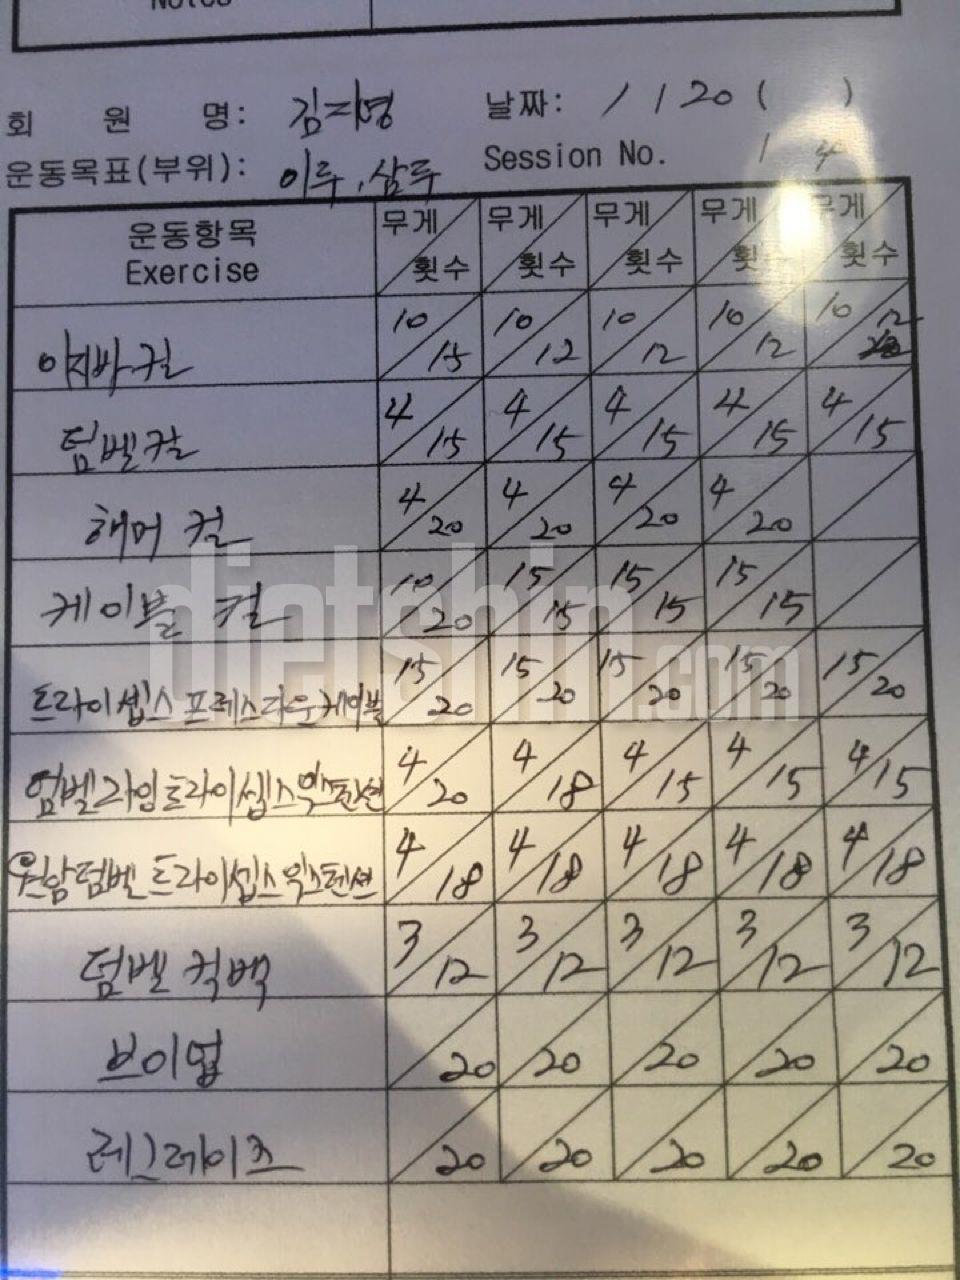 Notes
회 원 명: 김지영 날짜: / 1 20 ( )
운동목표(부위): 이두, 삼두 Session No. 14
운동항목 무게 무게 무게 무게 무게
Exercise 횟수 횟수 횟수 횟수 횟수
이지바 컬 10/15 10/12 10/12 10/12 10/12
덤벨컬 4/15 4/15 4/15 4/15 4/15
해머 컬 4/20 4/20 4/20 4/20
케이블 컬 10/20 15/15 15/15 15/15
트라이셉스 프레스다운케이블 15/20 15/20 15/20 15/20 15/20
덤벨라잉트라이셉스익스텐션 4/20 4/18 4/15 4/15 4/15
원암덤벨 트라이셉스 익스텐션 4/18 4/18 4/18 4/18 4/18
덤벨 킥백 3/12 3/12 3/12 3/12 3/12
브이업 /20 /20 /20 /20 /20
레그레이즈 /20 /20 /20 /20 /20
dietshin.com